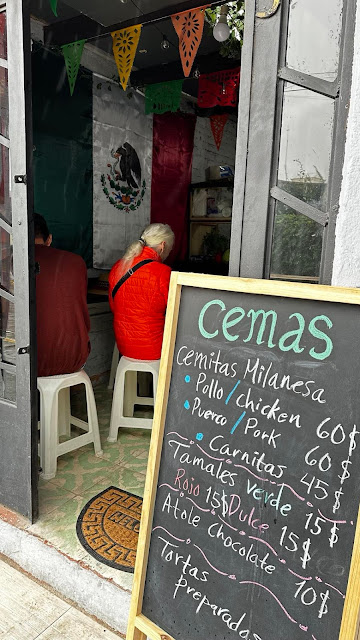 Cemas
Cemitas Milanesa
Pollo/chicken 60$
Puerco/Pork 60$
Carnitas 45$
Tamales verde 15$
Rojo 15$ Dulce 15$
Atole chocolate 10$
Tortas
preparadas